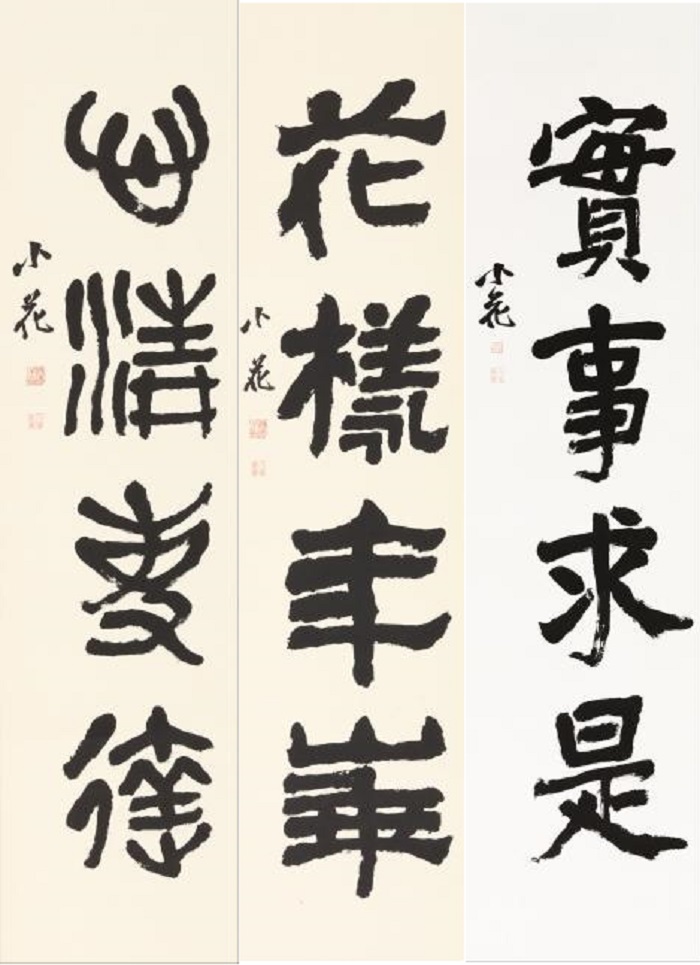 實事求是
小花
花樣年華
小花
心清達
小花